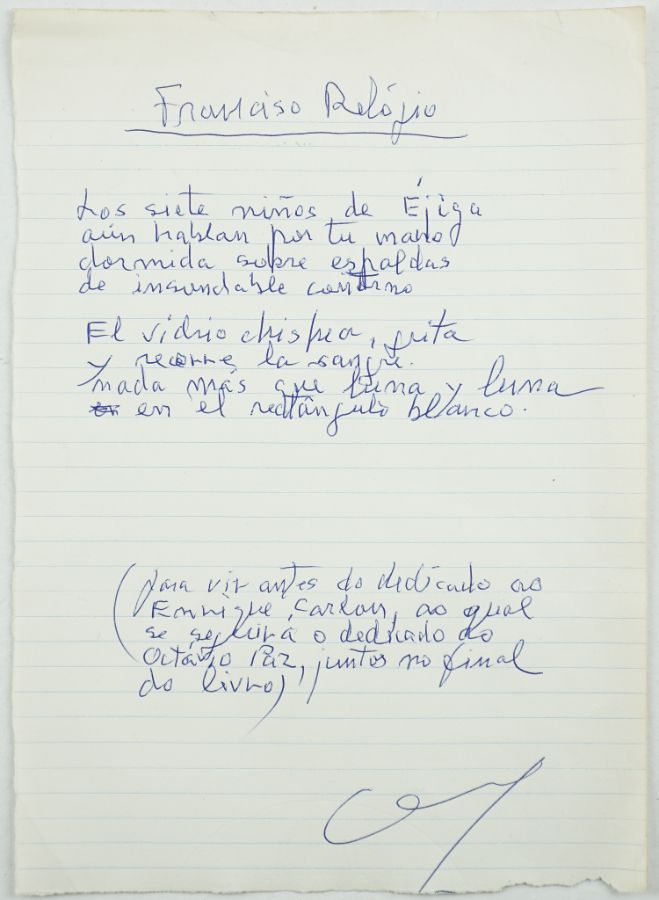 Francisco Relógio
Los siete niños de Éjiga
aún hablan por tu mano
dormida sobre espaldas
de insondable contorno
El vidrio chispea, grita
y recorre la sangre.
nada más que luna y luna
en el rectângulo blanco.
(para vir antes do dedicado ao
Enrique Carlon, ao qual
se seguirá o dedicado ao
Octávio Paz, juntos no final
do livro)